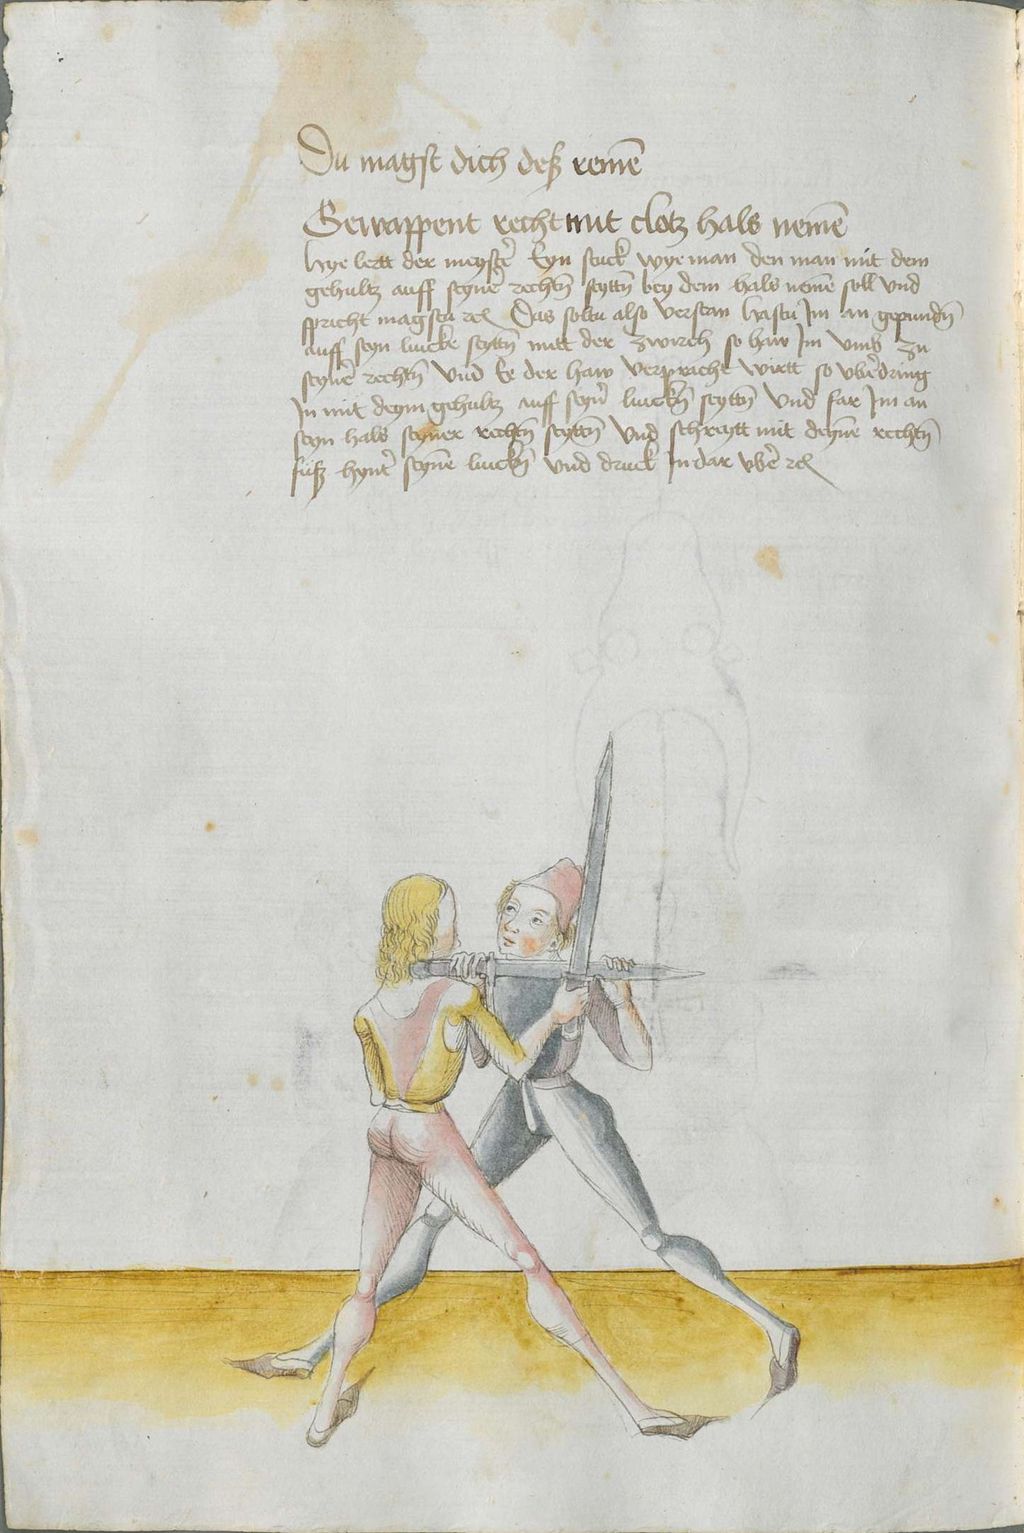 Du magst dich deß remē
Gewappent recht mit clotz hals nemē
Hye lertt der meystẽ Eyn stuck wye man den man mit dem
gehultz auff seynē rechtñ seyttñ bey dem hals nemē soll und
spricht magstu rc Das soltu also verstan Hastu Im an gepundñ
auff seyn lincke seyttñ mitt der zwirch so haw Im umb zu
seynē rechtñ Und Ee der haw verpracht wirtt so ubẽdring
In mit deym gehultz auff seyñ linckñ seyttñ Und far Im an
seyn hals seyner rechtñ seyttñ Und schreytt mit deynē rechtñ
fuß hyntẽ seynē linckñ Und druck In dar ubẽ rc